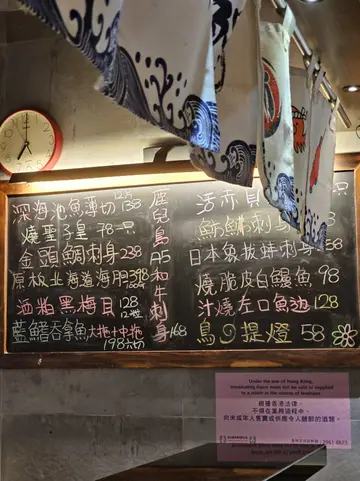 深海池魚薄切 138
12pc
燒聖子皇 78一只
金頭鯛刺身 238
原板北海道海胆 398
酒粕黑梅貝 128
藍鰭吞拿魚大拖十中拖 198 六切
鹿兒島A5和牛刺身 168
活赤貝
魴鮄刺身
日本象拔蚌刺身
燒脆皮白鱔 98
汁燒左口魚边 128
鳥の提燈 58
Under the law of Hong Kong,
intoxicating liquor must not be sold or supplied
to a minor in the course of business.
根據香港法律,
不得在業務過程中,
向未成年人售賣或供應令人醺醉的酒類。